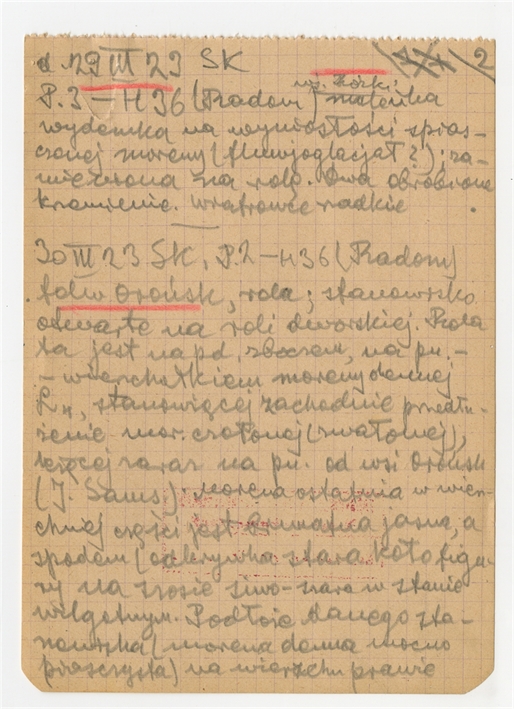 d. 29 III 23 SK 2
wś. Żorki;
P. 3 – H 36 (Radom) maleńka
wydemka na wyniosłości spias-
czonej moreny (fluwjoglacjał?); za-
mieniona na rolę. Dwa obrobione
kamienie. Wiatrowce rzadkie
30 III 23 SK, P. 2 – H 36 (Radom)
folw Orońsk, rola; stanowisko
otwarte na roli dworskiej. Rola
ta jest na pd. zboczem, na pn. –
– wierzchołkiem moreny dennej
L4, stanowiącej zachodnie przedłu-
żenie mor. czołowej (zwałowej),
leżącej zaraz na pn. od wsi Orońsk
(J. Sams). Morena ostatnia w wierz-
chniej części jest brunatna jasna, a
spodem (odkrywka stara koło figu-
ry na szosie siwo-szara w stanie
wilgotnym. Podłoże danego sta-
nowiska (morena denna mocno
piaszczysta) na wierzchu prawie